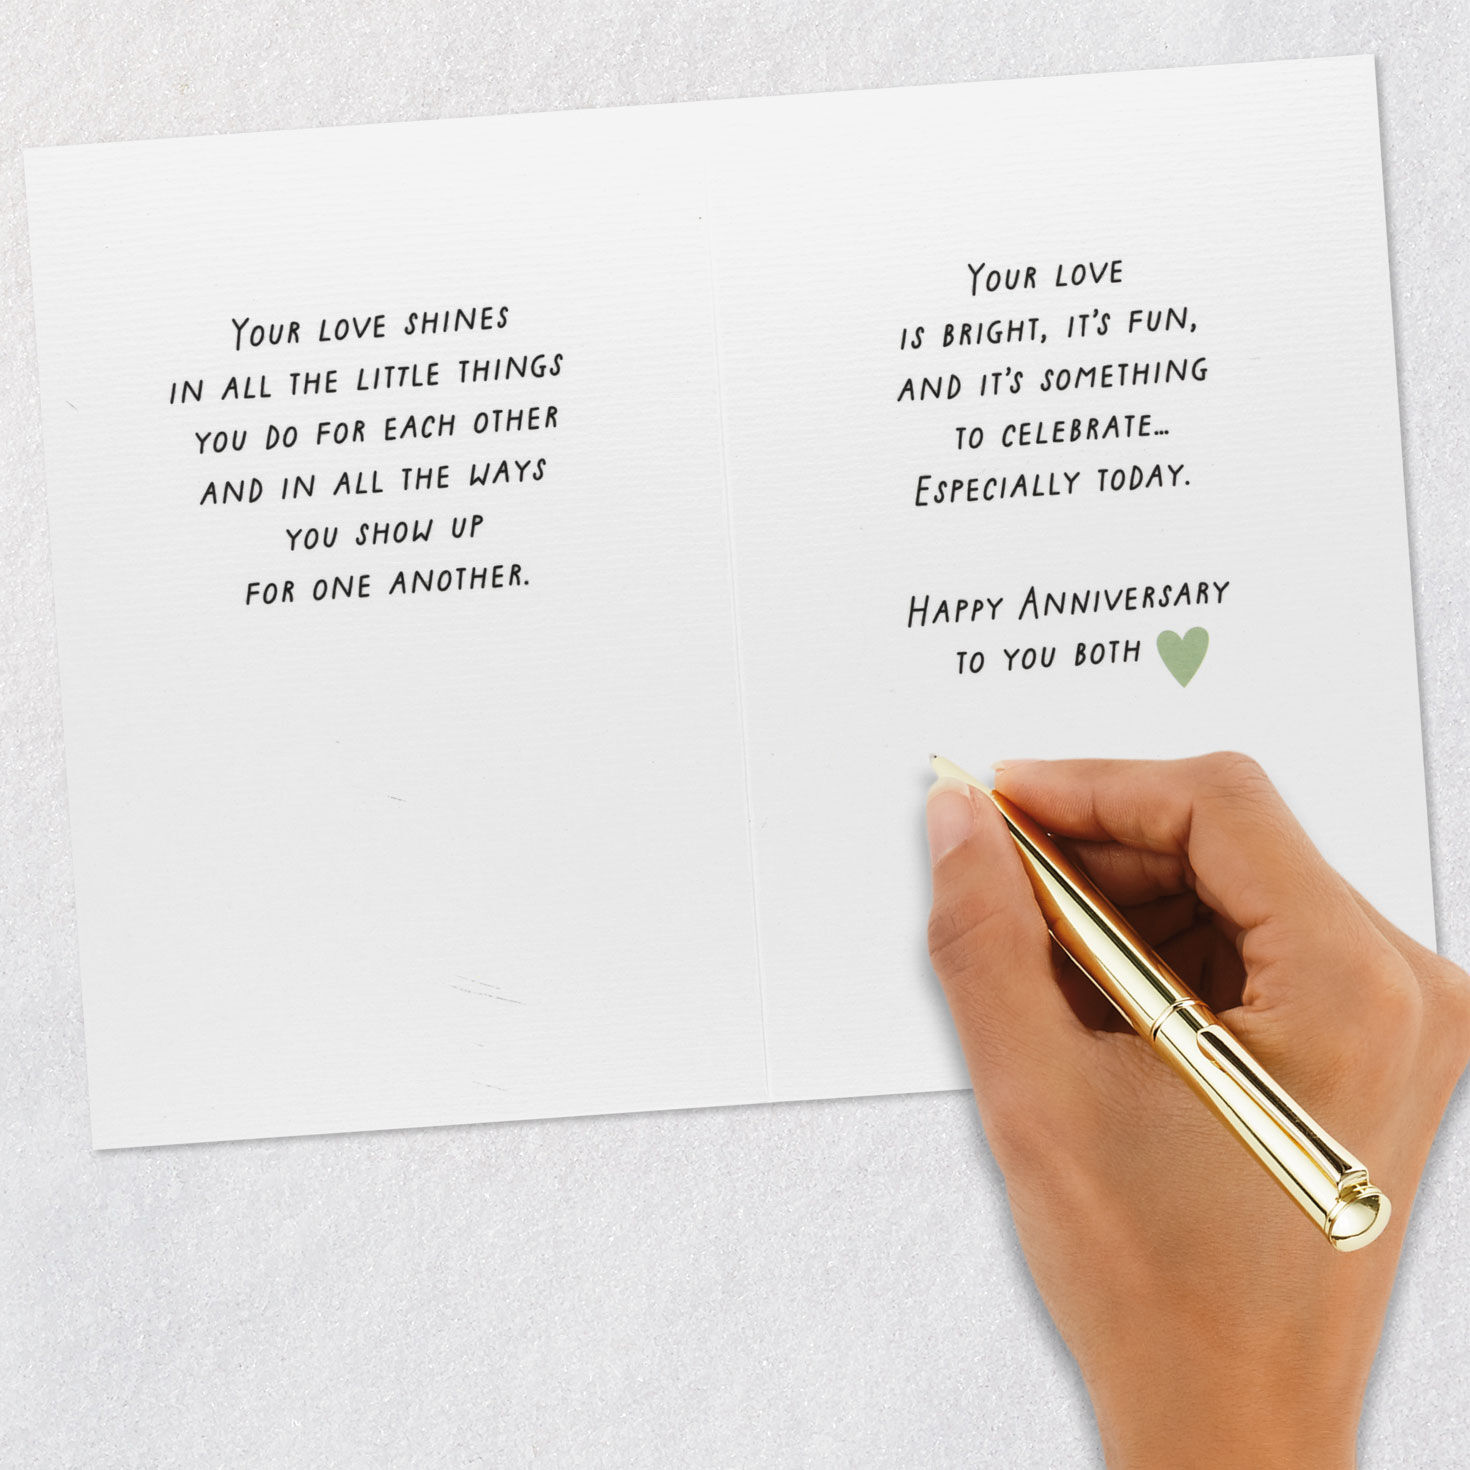 YOUR LOVE SHINES
IN ALL THE LITTLE THINGS
YOU DO FOR EACH OTHER
AND IN ALL THE WAYS
YOU SHOW UP
FOR ONE ANOTHER.
YOUR LOVE
IS BRIGHT, IT'S FUN,
AND IT'S SOMETHING
TO CELEBRATE...
ESPECIALLY TODAY.
HAPPY ANNIVERSARY
TO YOU BOTH